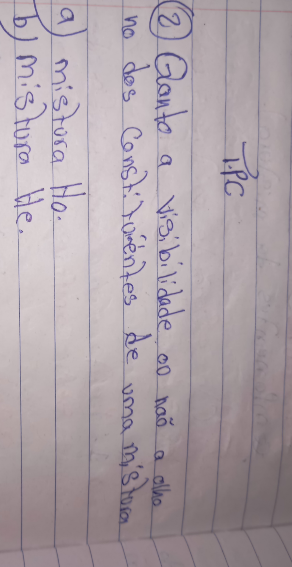 T.PC
② Ganto a visibilidade ou não a olho
no dos constituientes de uma mistura
a) mistura Ho.
b) mistura He.